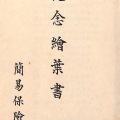 念繪葉書
簡易保險